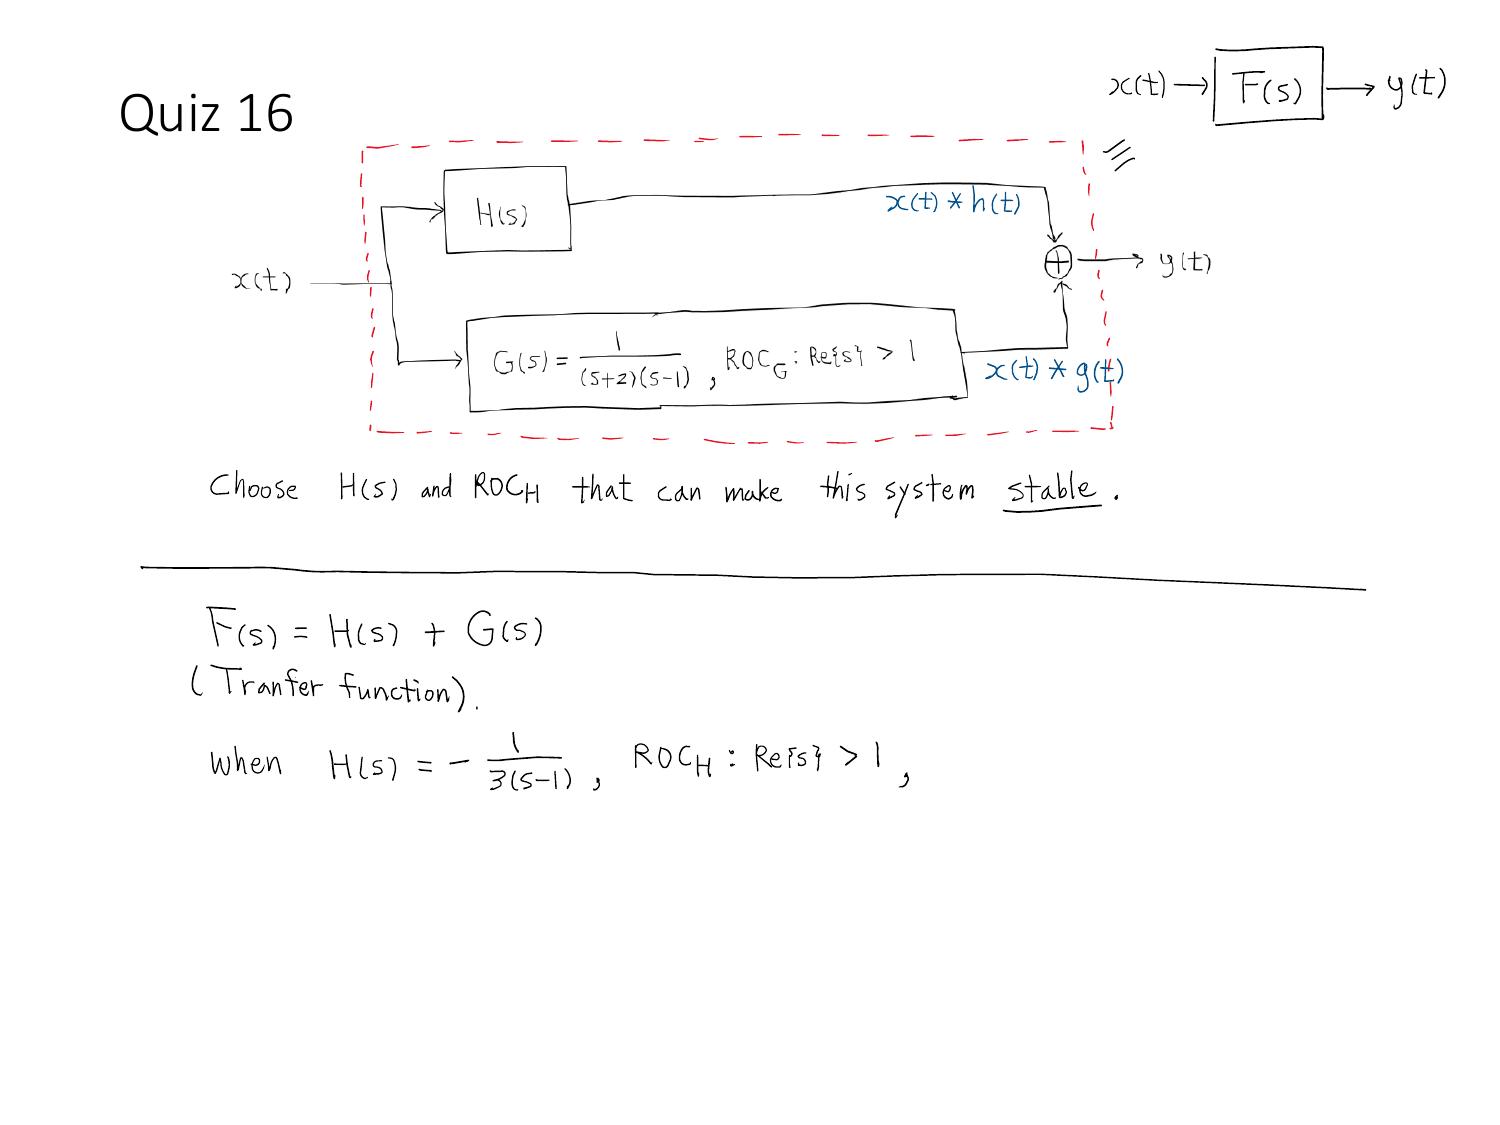 x(t) → F(s) → y(t)
Quiz 16
H(s)
x(t) * h(t)
x(t)
y(t)
G(s) = 1/((s+2)(s-1)) , ROC_G : Re{s} > 1
x(t) * g(t)
Choose H(s) and ROC_H that can make this system stable.
F(s) = H(s) + G(s)
(Tranfer function).
When H(s) = - 1/(3(s-1)) , ROC_H : Re{s} > 1 ,